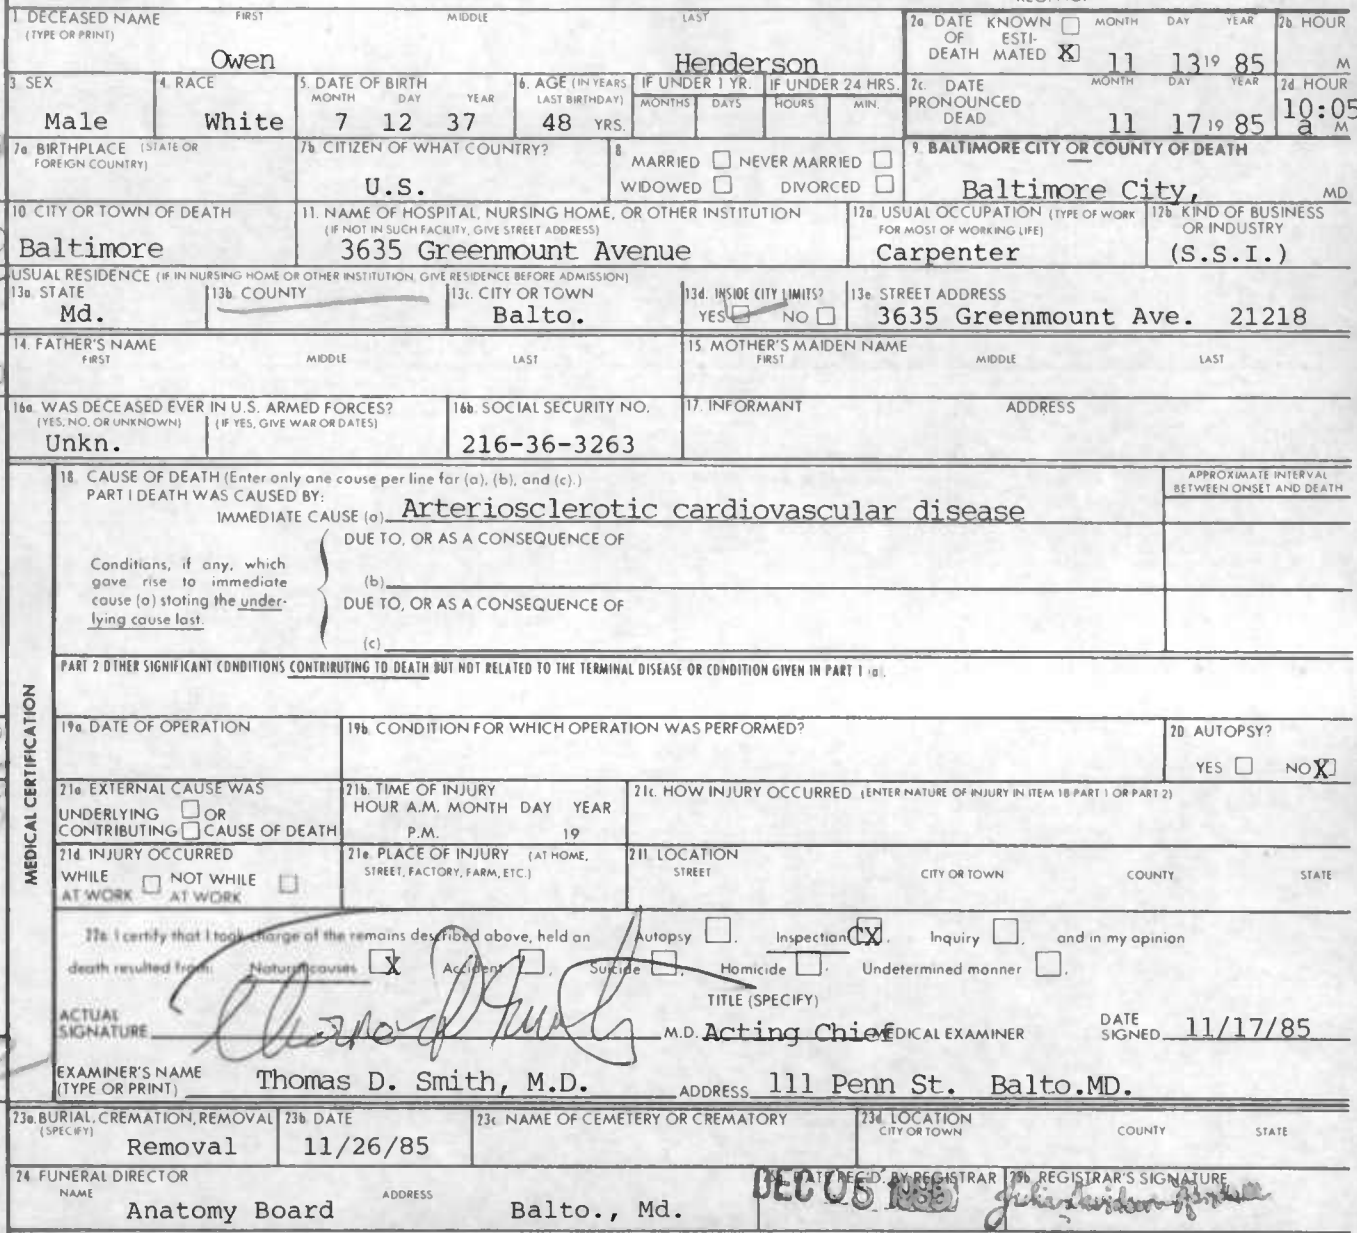 1 DECEASED NAME FIRST MIDDLE LAST
(TYPE OR PRINT)
Owen Henderson
2a DATE KNOWN ☐ MONTH DAY YEAR
OF ESTI-
DEATH MATED ☒ 11 13 19 85
2b HOUR
M
3 SEX
Male
4 RACE
White
5. DATE OF BIRTH
MONTH DAY YEAR
7 12 37
6. AGE (IN YEARS
LAST BIRTHDAY)
48 YRS.
IF UNDER 1 YR.
MONTHS DAYS
IF UNDER 24 HRS.
HOURS MIN.
2c. DATE MONTH DAY YEAR
PRONOUNCED
DEAD 11 17 19 85
2d HOUR
10:05
a M
7a BIRTHPLACE (STATE OR
FOREIGN COUNTRY)
7b CITIZEN OF WHAT COUNTRY?
U.S.
8
MARRIED ☐ NEVER MARRIED ☐
WIDOWED ☐ DIVORCED ☐
9 BALTIMORE CITY OR COUNTY OF DEATH
Baltimore City, MD
10 CITY OR TOWN OF DEATH
Baltimore
11. NAME OF HOSPITAL, NURSING HOME, OR OTHER INSTITUTION
(IF NOT IN SUCH FACILITY, GIVE STREET ADDRESS)
3635 Greenmount Avenue
12a USUAL OCCUPATION (TYPE OF WORK
FOR MOST OF WORKING LIFE)
Carpenter
12b KIND OF BUSINESS
OR INDUSTRY
(S.S.I.)
USUAL RESIDENCE (IF IN NURSING HOME OR OTHER INSTITUTION, GIVE RESIDENCE BEFORE ADMISSION)
13a STATE
Md.
13b COUNTY
13c. CITY OR TOWN
Balto.
13d. INSIDE CITY LIMITS?
YES ☑ NO ☐
13e STREET ADDRESS
3635 Greenmount Ave. 21218
14. FATHER'S NAME
FIRST MIDDLE LAST
15. MOTHER'S MAIDEN NAME
FIRST MIDDLE LAST
16a WAS DECEASED EVER IN U.S. ARMED FORCES?
(YES, NO, OR UNKNOWN) (IF YES, GIVE WAR OR DATES)
Unkn.
16b. SOCIAL SECURITY NO.
216-36-3263
17. INFORMANT ADDRESS
MEDICAL CERTIFICATION
18 CAUSE OF DEATH (Enter only one cause per line for (a), (b), and (c).)
PART I DEATH WAS CAUSED BY:
IMMEDIATE CAUSE (a) Arteriosclerotic cardiovascular disease
APPROXIMATE INTERVAL
BETWEEN ONSET AND DEATH
DUE TO, OR AS A CONSEQUENCE OF
Conditions, if any, which
gave rise to immediate
cause (a) stating the under-
lying cause last.
(b)
DUE TO, OR AS A CONSEQUENCE OF
(c)
PART 2 OTHER SIGNIFICANT CONDITIONS CONTRIBUTING TO DEATH BUT NOT RELATED TO THE TERMINAL DISEASE OR CONDITION GIVEN IN PART 1 (a).
19a DATE OF OPERATION
19b CONDITION FOR WHICH OPERATION WAS PERFORMED?
20 AUTOPSY?
YES ☐ NO ☒
21a EXTERNAL CAUSE WAS
UNDERLYING ☐ OR
CONTRIBUTING ☐ CAUSE OF DEATH
21b. TIME OF INJURY
HOUR A.M. MONTH DAY YEAR
P.M. 19
21c. HOW INJURY OCCURRED (ENTER NATURE OF INJURY IN ITEM 18 PART 1 OR PART 2)
21d INJURY OCCURRED
WHILE ☐ NOT WHILE ☐
AT WORK AT WORK
21e PLACE OF INJURY (AT HOME,
STREET, FACTORY, FARM, ETC.)
21f LOCATION
STREET CITY OR TOWN COUNTY STATE
22a I certify that I took charge of the remains described above, held an Autopsy ☐, Inspection ☒, Inquiry ☐, and in my opinion
death resulted from: Natural causes ☒ Accident ☐, Suicide ☐, Homicide ☐. Undetermined manner ☐.
TITLE (SPECIFY)
ACTUAL
SIGNATURE M.D. Acting Chief MEDICAL EXAMINER
DATE
SIGNED 11/17/85
EXAMINER'S NAME
(TYPE OR PRINT) Thomas D. Smith, M.D. ADDRESS 111 Penn St. Balto.MD.
23a. BURIAL, CREMATION, REMOVAL
(SPECIFY)
Removal
23b DATE
11/26/85
23c NAME OF CEMETERY OR CREMATORY
23d. LOCATION
CITY OR TOWN COUNTY STATE
24 FUNERAL DIRECTOR
NAME ADDRESS
Anatomy Board Balto., Md.
DATE REC'D. BY REGISTRAR
DEC 05 1985
25b REGISTRAR'S SIGNATURE